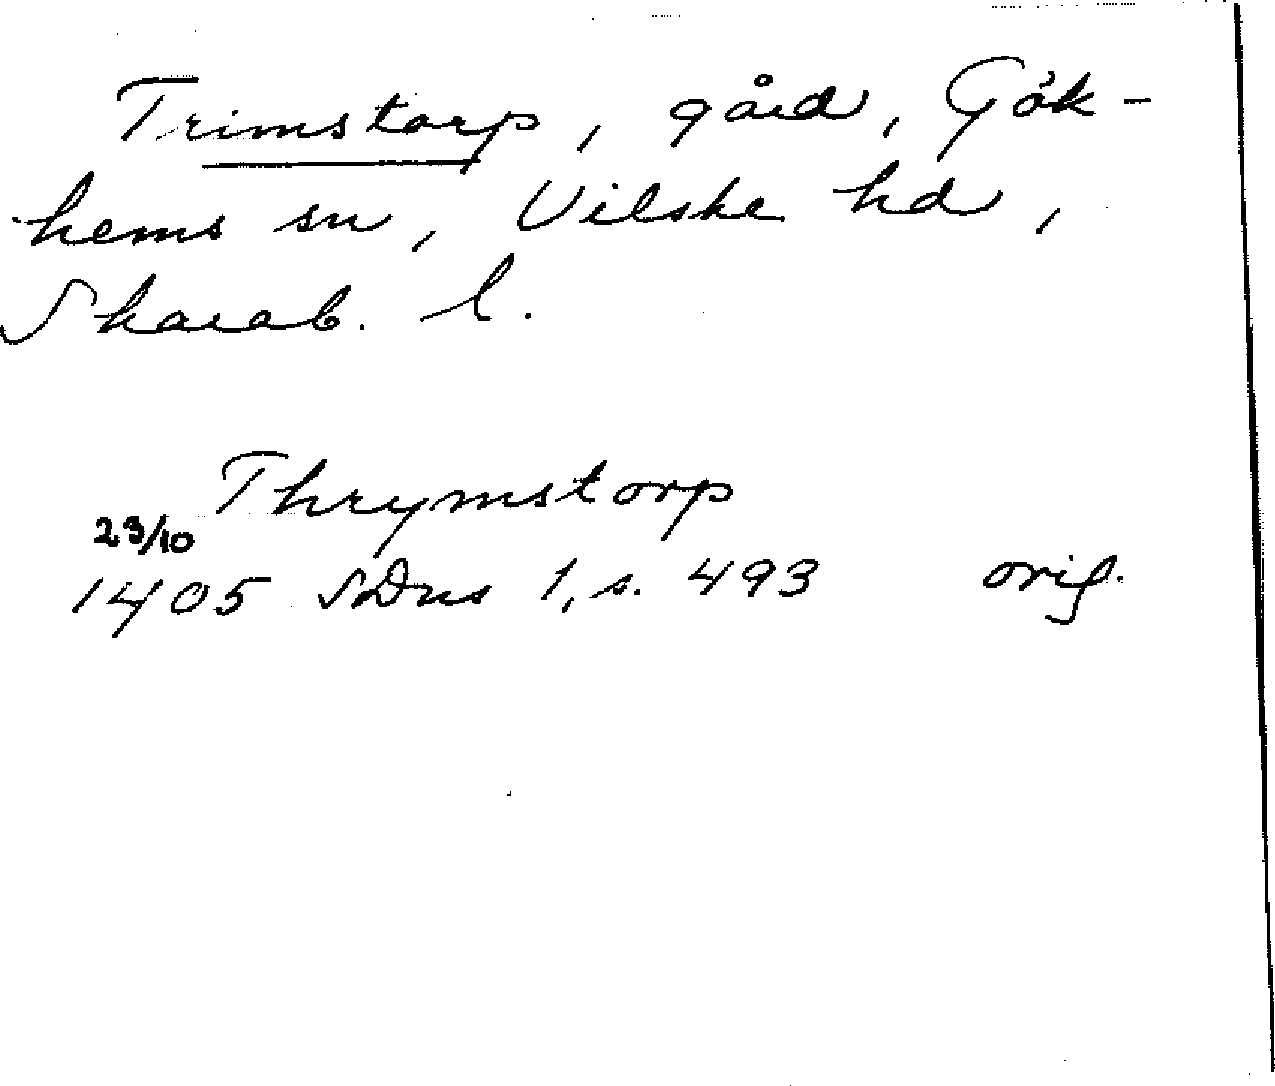 Trimstorp, gård, Gök-
hems sn, Vilske hd,
Skarab. l.
Thrymstorp
23/10
1405 SDns 1, s. 493 orig.